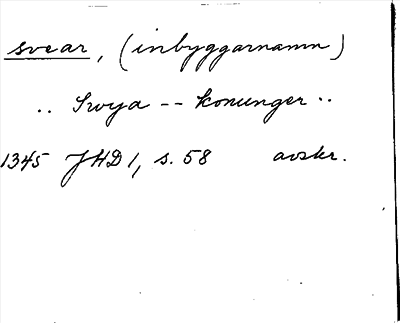 svear, (inbyggarnamn)
.. Swya -- konunger ..
1345 JHD 1, s. 58 avskr.